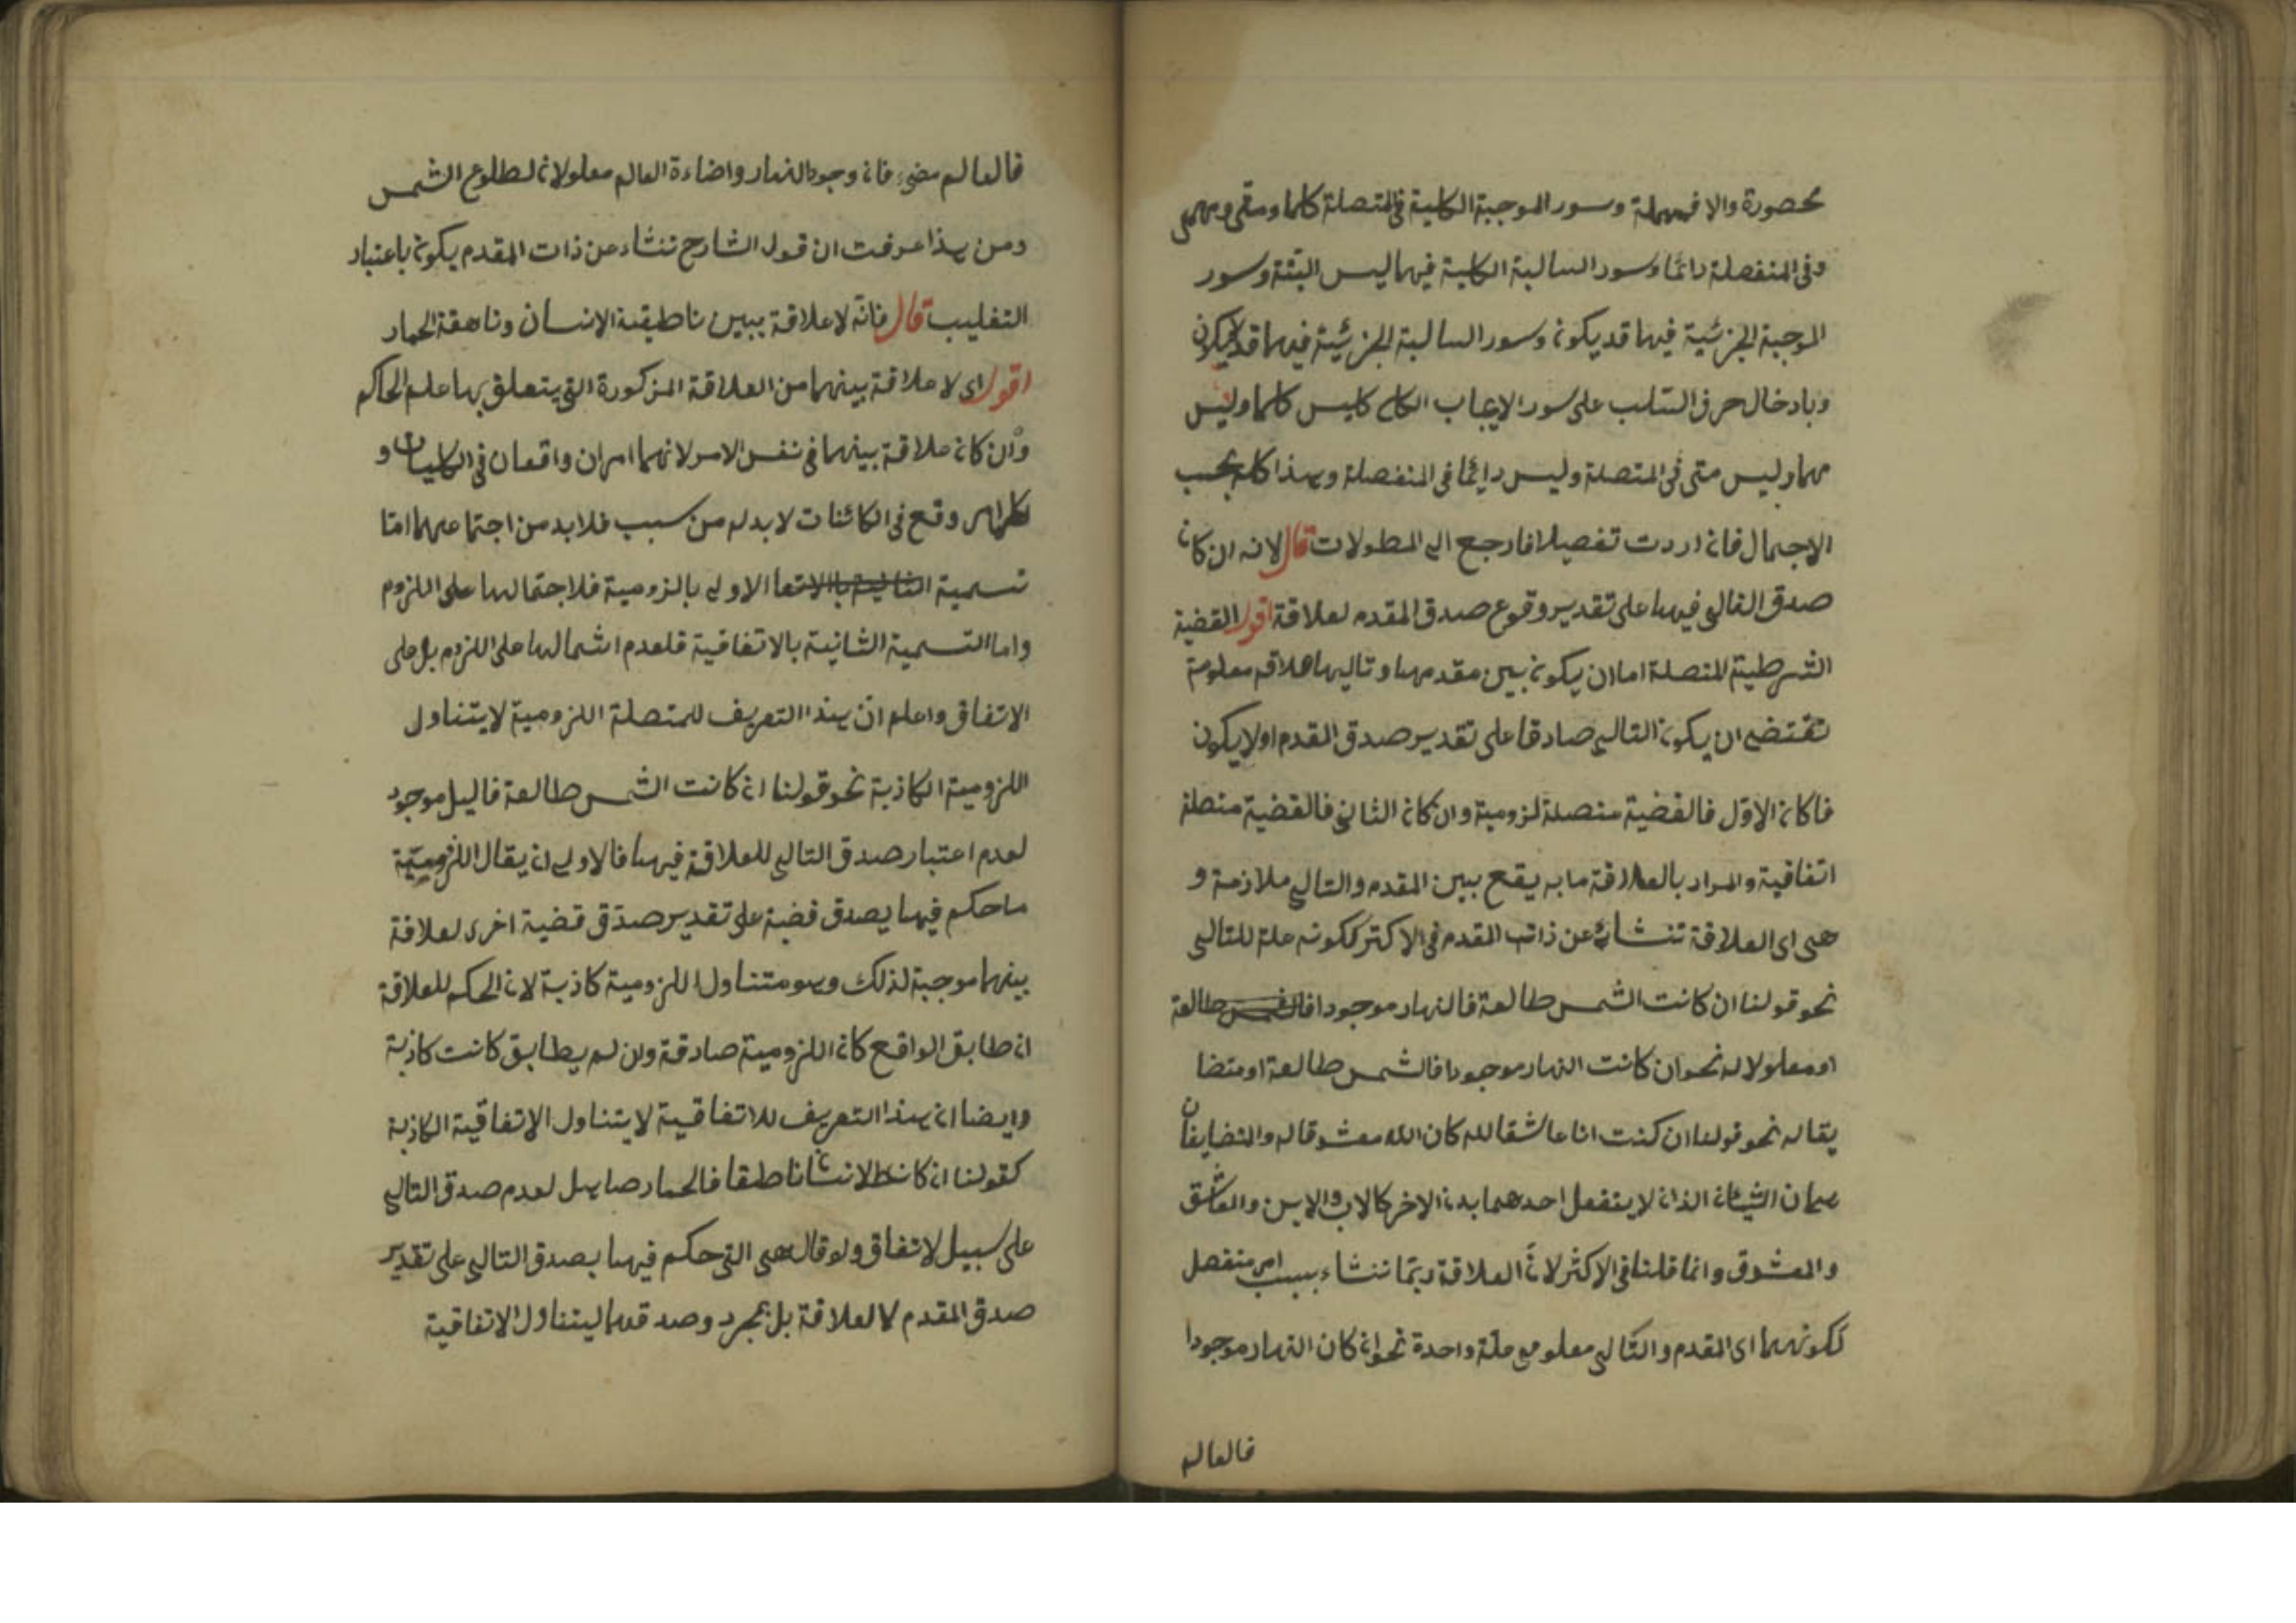 محصورة والا فمهملة وسور الموجبة الكلية فى المتصلة كلما ومتى ومهمى
وفى المنفصلة دائما وسور السالبة الكلية فيهما ليس البتة وسور
الموجبة الجزئية فيهما قد يكون وسور السالبة الجزئية فيهما قد لا يكون
وبادخال حرف السلب على سور الايجاب الكلى كليس كلما وليس
مهما وليس متى فى المتصلة وليس دائما فى المنفصلة وهذا كله بحسب
الاجمال فان اردت تفصيلا فارجع الى المطولات قال لانه ان كان
صدق التالى فيها على تقدير وقوع صدق المقدم لعلاقة اقول القضية
الشرطية المتصلة اما ان يكون بين مقدمها وتاليها علاقة معلومة
تقتضى ان يكون التالى صادقا على تقدير صدق المقدم او لا يكون
فاكان الاول فالقضية متصلة لزومية وان كان الثانى فالقضية متصلة
اتفاقية والمراد بالعلاقة ما به يقع بين المقدم والتالى ملازمة و
هى اى العلاقة تنشاء عن ذات المقدم فى الاكثر ككونه علة للتالى
نحو قولنا ان كانت الشمس طالعة فالنهار موجود افالشمس طالعة
او معلولا له نحو ان كانت النهار موجودا فالشمس طالعة او متضا
يقا له نحو قولنا ان كنت انا عاشقا لله كان الله معشوقا له والمتضايفان
هما ان الشيئان الذان لا ينفعل احدهما بدن الاخر كالاب والابن والعاشق
والمعشوق وانما قلنا فى الاكثر لان العلاقة ربما تنشاء بسبب امر منفصل
ككونهما اى المقدم والتالى معلو مع علة واحدة نحو ان كان النهار موجودا
فالعالم
فالعالم مضئ فان وجود النهار واضاءة العالم معلولان لطلوع الشمس
ومن هذا عرفت ان قول الشارح تنشاء عن ذات المقدم يكون باعتبار
التغليب قال فانه لا علاقة ببين ناطيقية الانسان وناهقة الحمار
اقول اى لا علاقة بينهما من العلاقة المذكورة التى يتعلق بها علم الحاكم
وان كان علاقة بينهما فى نفس الامر لانهما امران واقعان فى الكليات و
كلما امر وقع فى الكائنات لا بد له من سبب فلا بد من اجتماعهما اما
تسمية الثانية بالاتفا الاولى بالزومية فلاحتمالها على اللزوم
واما التسمية الثانية بالاتفاقية فلعدم اشتمالها على اللزوم بل على
الاتفاق واعلم ان هذا التعريف للمتصلة اللزومية لا يتناول
اللزومية الكاذبة نحو قولنا ان كانت الشمس طالعة فاليل موجود
لعدم اعتبار صدق التالى للعلاقة فيها فالاولى ان يقال اللزومية
ما حكم فيها يصدق قضية على تقدير صدق قضية اخرى لعلاقة
بينهما موجبة لذلك وهو متناول اللزومية كاذبة لان الحكم للعلاقة
ان طابق الواقع كان اللزومية صادقة وان لم يطابق كانت كاذبة
وايضا ان هذا التعريف للاتفاقية لا يتناول الاتفاقية الكاذبة
كقولنا ان كان الانسان ناطقا فالحمار صاهل لعدم صدق التالى
على سبيل لاتفاق ولو قال هى التى حكم فيها بصدق التالى على تقدير
صدق المقدم لا لعلاقة بل بمجرد وصدقهما ليتناول الاتفاقية